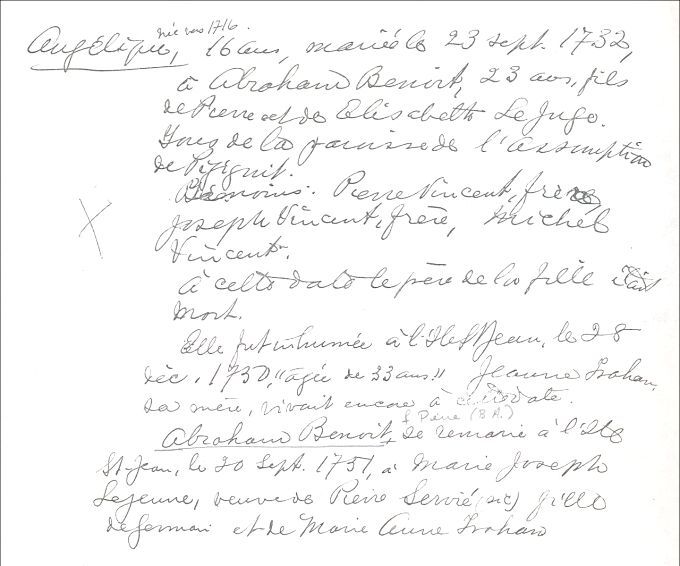 née vers 1716.
Angélique, 16 ans, mariée le 23 sept. 1732,
à Abraham Benoit, 23 ans, fils
de Pierre et de Elisabeth LeJuge.
Tous de la paroisse de l'Assomption
de Pigiguit.
Témoins: Pierre Vincent, frère,
Joseph Vincent, frère, Michel
Vincent.
À cette date le père de la fille était
mort.
Elle fut inhumée à l'Ile St Jean, le 28
déc. 1750, "agée de 33 ans" Jeanne Trahan,
sa mère, vivait encore à cette date.
f. Pierre (B.A.)
Abraham Benoit, se remarie à l'Ile
St-Jean, le 20 Sept. 1751, à Marie Joseph
Lejeune, veuve de Pierre Servié (sic) fille
de Germain et de Marie Anne Trahan